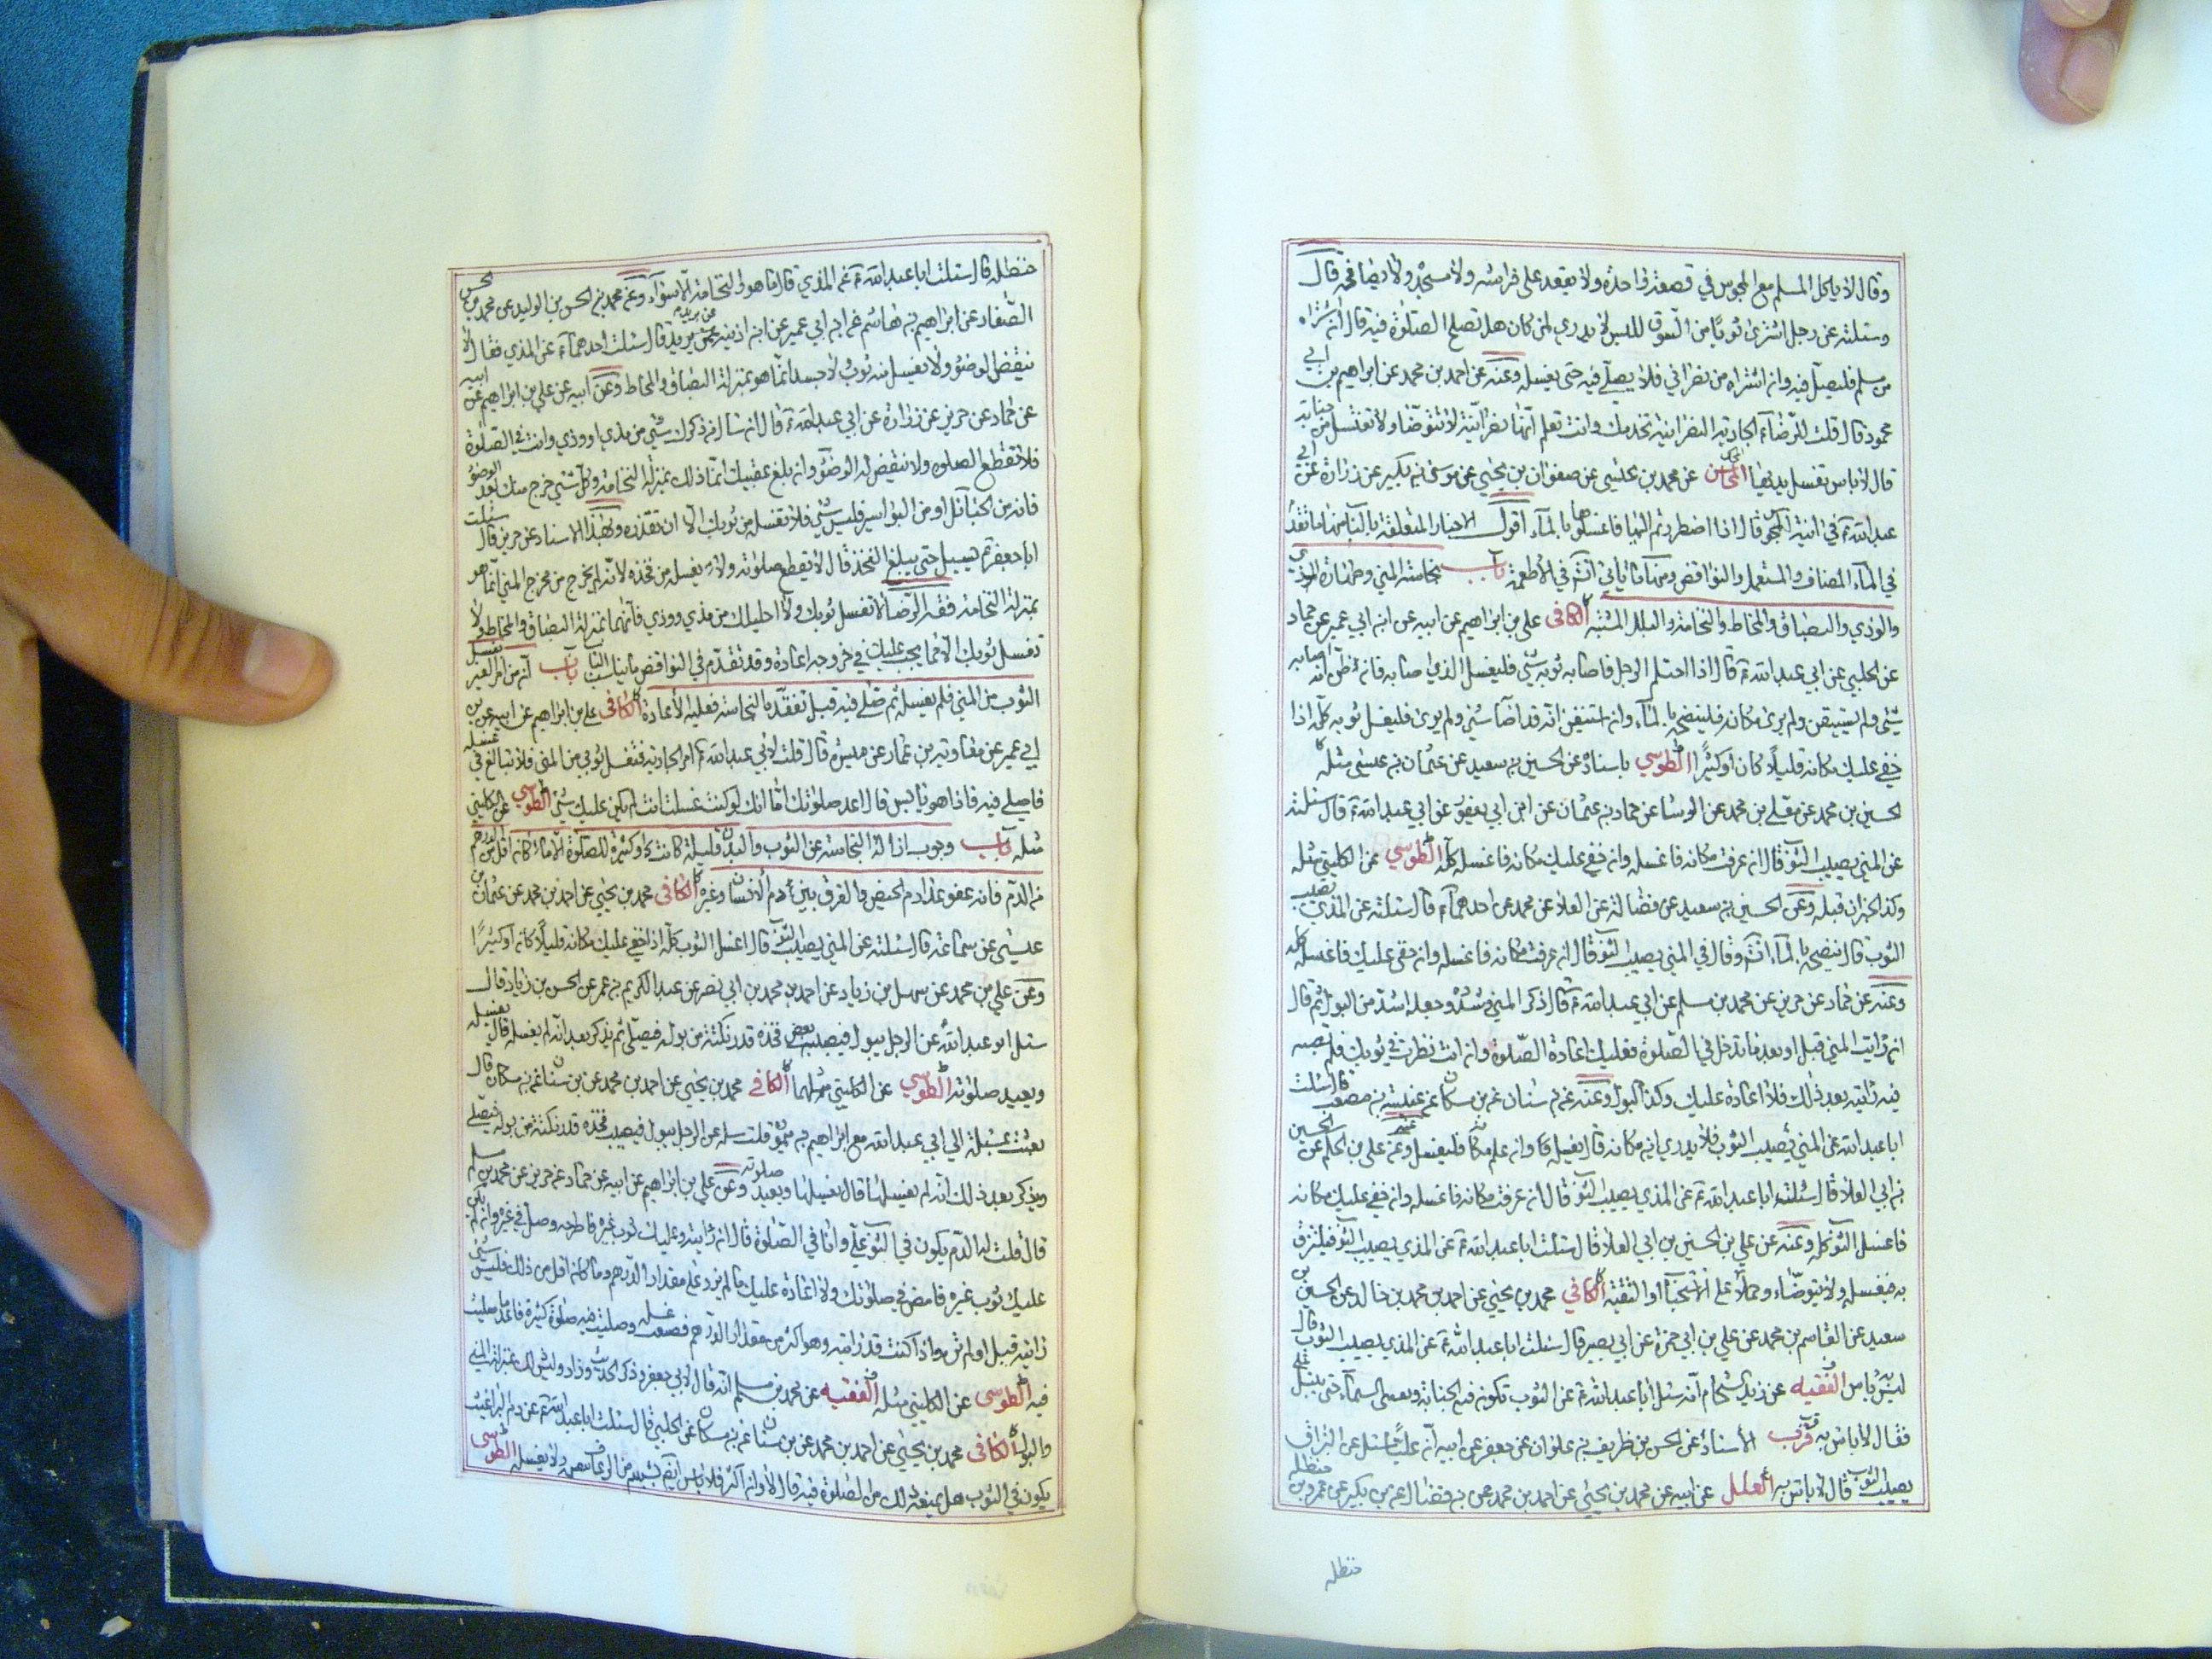 وقال لا ياكل المسلم مع المجوس في قصعة واحدة ولا يقعد على فراشه ولا مسجده ولا يصافحه قال
وسئلته عن رجل اشترى ثوبا من السوق للبس لا يدري لمن كان هل تصلح الصلوة فيه قال ان اشتراه
من مسلم فليصل فيه وان اشتراه من نصراني فلا يصلي فيه حتى يغسله وعنه عن احمد بن محمد عن ابراهيم بن ابي
محمود قال قلت للرضاء الجارية النصرانية تخدمك وانت تعلم انها نصرانية لا تتوضا ولا تغتسل من جنابة
قال لا باس تغسل يديها المحاسن عن محمد بن عيسى عن صفوان بن يحيى عن موسى بن بكير عن زرارة عن ابي
عبد الله ع في انية المجوس قال اذا اضطررتم اليها فاغسلوها بالماء اقول الاخبار المتعلقة بالباب منها ما تقدم
في الماء المضاف والمستعمل والنواقض ومنها ما ياتي انش في الاطعمة باب نجاسة المني وطهارة المذي
والوذي والبصاق والمخاط والنخامة والبلل المشتبه الكافى علي بن ابراهيم عن ابيه عن ابن ابي عمير عن حماد
عن الحلبي عن ابي عبد الله ع قال اذا احتلم الرجل فاصابه ثوبه شي فليغسل الذي اصابه فان ظن انه اصابه
شي ولم يستيقن ولم يرى مكانه فلينضحه بالماء وان استيقن انه قد اصابه شي ولم يرى فليغسل ثوبه كله اذا
خفي عليك مكانه قليلا كان او كثيرا الطوسي باسناده عن الحسين بن سعيد عن عثمان بن عيسى مثله كا
الحسين بن محمد عن معلى بن محمد عن الوشا عن حماد بن عثمان عن ابن ابي يعفور عن ابي عبد الله ع قال سئلته
عن المني يصيب الثوب قال ان عرفت مكانه فاغسله وان خفي عليك مكانه فاغسله كله الطوسي عن الكليني مثله
وكذا الخبران قبله وعن الحسين بن سعيد عن فضالة عن العلا عن محمد عن احدهما ع قال سئلته عن المذي يصيب
الثوب قال ينضحه بالماء انش وقال في المني يصيب الثوب قال ان عرفت مكانه فاغسله وان خفى عليك فاغسله كله
وعنه عن حماد عن حريز عن محمد بن مسلم عن ابي عبد الله ع قال ذكر المني وشدده وجعله اشد من البول ثم قال
ان رايت المني قبل او بعد ما تدخل في الصلوة فعليك اعادة الصلوة وان انت نظرت في ثوبك فلم تصبه
فيه رايته بعد ذلك فلا اعادة عليك وكذا البول وعنه عن بن سنان عن بن مسكان عن عنبسة بن مصعب قال سئلت
ابا عبد الله عن المني يصيب الثوب فلا يدري اين مكانه قال يغسله كله وان علم مكانه فليغسله وعنه عن علي بن الحكم عن الحسين
بن ابي العلا قال سئلت ابا عبد الله ع عن المذي يصيب الثوب قال ان عرفت مكانه فاغسله وان خفي عليك مكانه
فاغسل الثوب كله وعنه عن علي بن الحسين بن ابي العلا قال سئلت ابا عبد الله ع عن المذي يصيب الثوب فيلتزق
به يغسله ولا يتوضاء وحملا على الاستحباب او التقية الكافي محمد بن يحيى عن احمد بن محمد بن خالد عن الحسين بن
سعيد عن القاسم بن محمد عن علي بن ابي حمزة عن ابي بصير قال سئلت ابا عبد الله ع عن المذي يصيب الثوب قال
ليس به باس الفقيه عن زيد الشحام انه سئل ابا عبد الله ع عن الثوب تكون فيه الجنابة وتصيبه السماء حتى يبتل علي
فقال لا باس به قرب الاسناد عن الحسن بن ظريف بن علوان عن جعفر عن ابيه ان عليا سئل عن البزاق
يصيب الثوب قال لا باس به العلل عن ابيه عن محمد بن يحيى عن احمد بن محمد عن بن فضال عن بن بكير عن عمر وبن حنظله
حنظله
حنظله قال سئلت ابا عبد الله ع عن المذي قال ما هو والنخامة الا سواء وعن محمد بن الحسن بن الوليد عن محمد بن الحسن
الصفار عن ابراهيم بن هاشم عن ابن ابي عمير عن ابن اذينه عن بريد قال سئلت احدهما ع عن المذي فقال لا
ينقض الوضوء ولا يغسل منه ثوب ولا جسد انما هو بمنزلة البصاق والمخاط وعن ابيه عن علي بن ابراهيم عن ابيه
عن حماد عن حريز عن زرارة عن ابي عبد الله ع قال ان سال من ذكرك شي من مذي او وذي وانت في الصلوة
فلا تقطع الصلوه ولا ينقض له الوضوء وان بلغ عقبيك انما ذلك بمنزلة النخامة وكل شي خرج منك بعد الوضوء
فانه من الحبائل او من البواسير فليس بشي فلا تغسله من ثوبك الا ان تقذره وبهذا الاسناد عن حريز قال سئلت
ابا جعفر ع يسيل حتى يبلغ الفخذ قال لا يقطع صلوته ولا يغسله من فخذه لانه لم يخرج من مخرج المني انما هو
بمنزلة النخامة فقه الرضا لا تغسل ثوبك ولا احليلك من مذي ووذي فانهما بمنزلة البصاق والمخاط ولا
تغسل ثوبك الا مما يجب عليك في خروجه اعادة وقد تقدم في النواقض ما يناسب الباب باب انه من امر الغير بغسل
الثوب من المني فلم يغسله ثم صلى فيه قبل تفقده النجاسة فعليه الاعادة الكافى علي بن ابراهيم عن ابيه عن بن
ابي عمير عن معاوية بن عمار عن ميسر قال قلت لابي عبد الله ع امر الجارية فتغسل ثوبي من المني فلا تبالغ في غسله
فاصلي فيه فاذا هو يابس قال اعد صلوتك اما انك لو كنت غسلت انت لم يكن عليك شي الطوسي عن الكليني
مثله باب وجوب ازالة النجاسة عن الثوب والبدن قليلة كانت او كثيرة للصلوة الا ما كان اقل من الدرهم
من الدم فانه عفو عدا دم الحيض والفرق بين دم الانسان وغيره الكافى محمد بن يحيى عن احمد بن محمد عن عثمان بن
عيسى عن سماعة قال سئلته عن المني يصيب الثوب قال اغسل الثوب كله اذا خفي عليك مكانه قليلا كان او كثيرا
وعن علي بن محمد عن سهل بن زياد عن احمد بن محمد بن ابي نصر عن عبد الكريم بن عمر عن الحسن بن زياد قال
سئل ابو عبد الله عن الرجل يبول فيصيب بعض فخذه قدر نكتة من بوله فيصلي ثم يذكر بعد انه لم يغسله قال يغسله
ويعيد صلوته الطوسي عن الكليني مثلهما الكافي محمد بن يحيى عن احمد بن محمد عن بن سنان عن بن مسكان قال
بعثت بمسئلة الى ابي عبد الله مع ابراهيم بن ميمون قلت سله عن الرجل يبول فيصيب فخذه قدر نكتة من بوله فيصلي
ويذكر بعد ذلك انه لم يغسلها قال يغسلها ويعيد صلوته وعن علي بن ابراهيم عن ابيه عن حماد عن حريز عن محمد بن مسلم
قال قلت له الدم يكون في الثوب علي وانا في الصلوة قال ان رايته وعليك ثوب غيره فاطرحه وصل في غيره وان لم يكن
عليك ثوب غيره فامض في صلوتك ولا اعادة عليك ما لم يزد على مقدار الدرهم وما كان اقل من ذلك فليس بشي
رايته قبل او لم تره واذا كنت قد رايته وهو اكثر من مقدار الدرهم فضيعت غسله وصليت فيه صلوة كثيرة فاعد ما صليت
فيه الطوسى عن الكليني مثله الفقيه عن محمد بن مسلم انه قال لابي جعفر وذكر الحديث وزاد وليس ذلك بمنزلة المني
والبول الكافى محمد بن يحيى عن احمد بن محمد عن بن سنان عن بن مسكان عن الحلبي قال سئلت ابا عبد الله ع عن دم البراغيث
يكون في الثوب هل يمنعه ذلك من الصلوة فيه قال لا وان كثر فلا باس ايضا بشبهه من الرعاف ينضحه ولا يغسله الطوسى